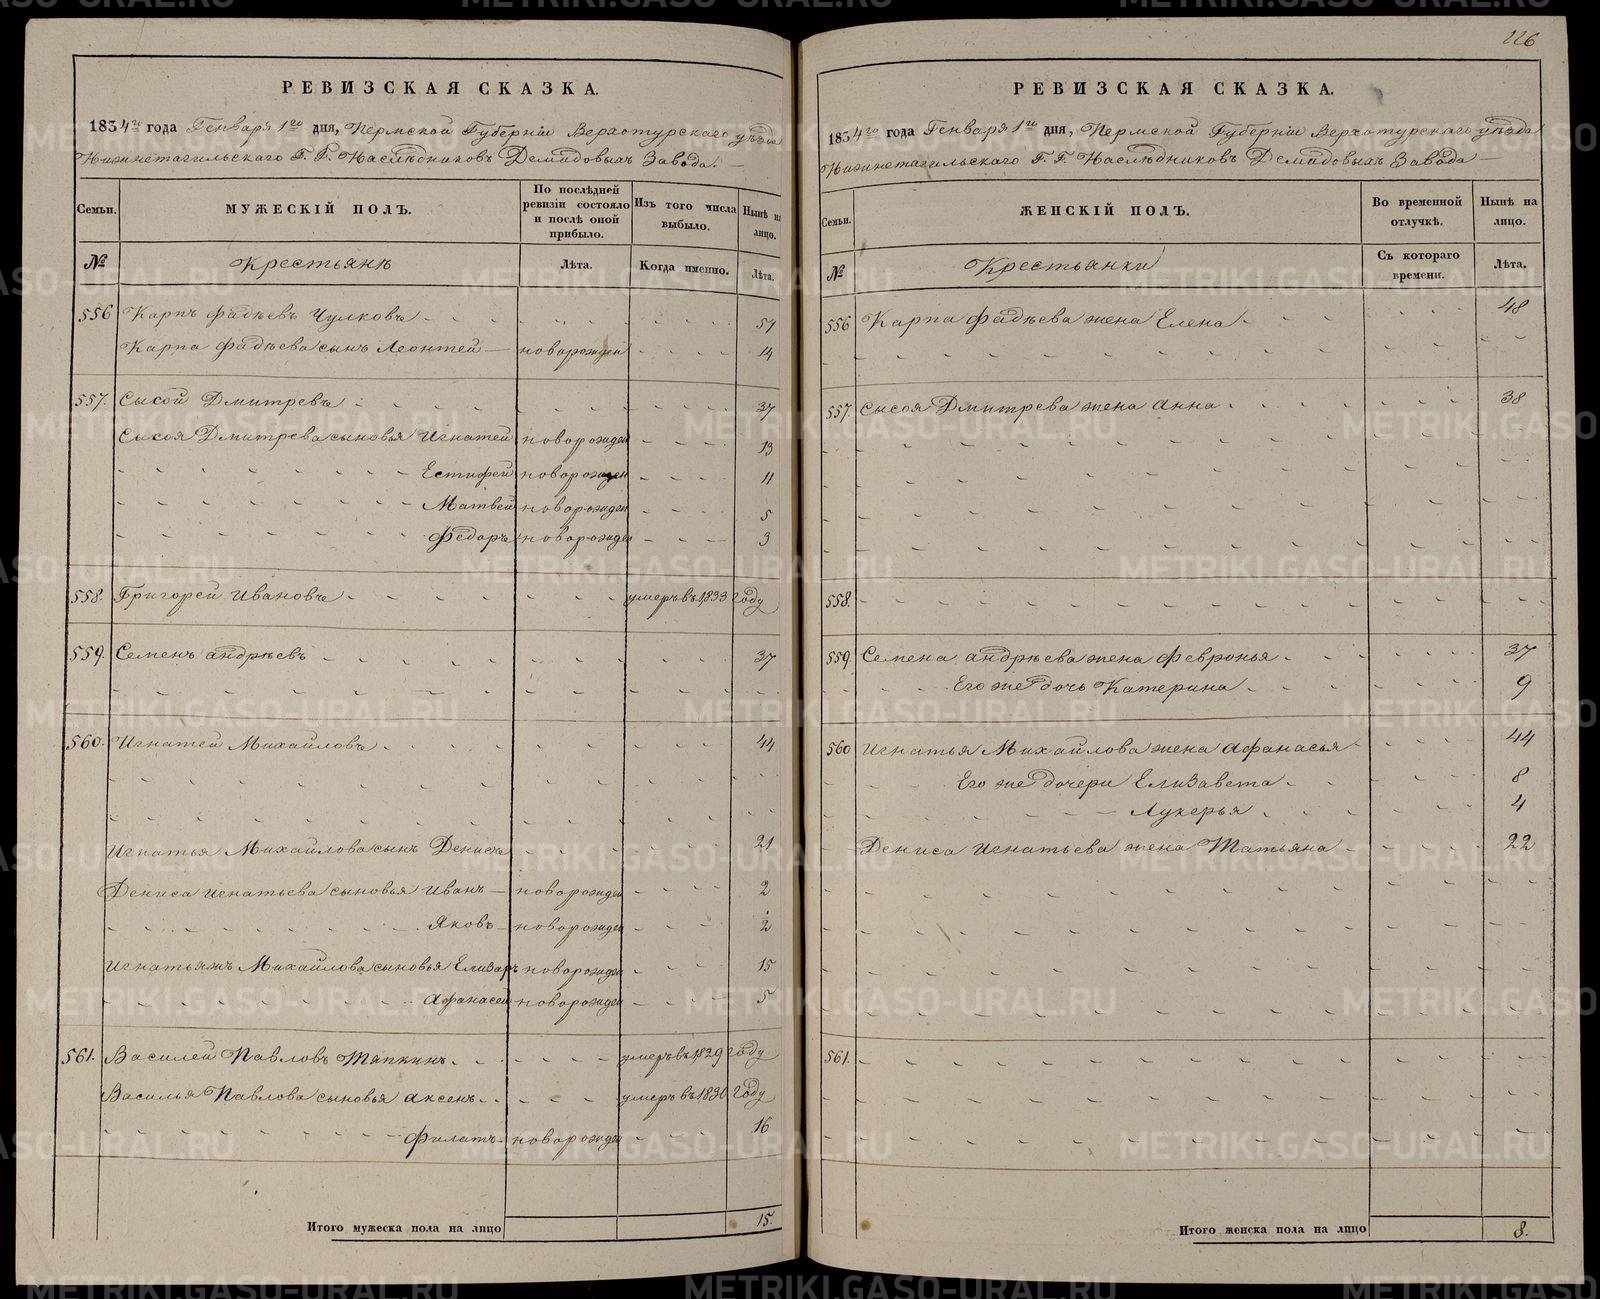 226
РЕВИЗСКАЯ СКАЗКА.
1834го года Генваря 1го дня, Пермской Губернiи Верхотурскаго уѣзда
Нижнетагильскаго Г. Г. Наслѣдниковъ Демидовыхъ Завода.
Семьи.
МУЖЕСКІЙ ПОЛЪ.
По послѣдней ревизіи состояло и послѣ оной прибыло.
Изъ того числа выбыло.
Нынѣ на лицо.
№
Крестьянѣ
Лѣта.
Когда именно.
Лѣта.
556 Карпъ Фадѣевъ Чулковъ 51
Карпа Фадѣева сынъ Леонтей новорожден 14
557. Сысой Дмитревъ 37
Сысоя Дмитрева сыновья Игнатей новорожден 13
Естифей новорожден 11
Матвей новорожден 5
Федоръ новорожден 3
558. Григорей Ивановъ умеръ въ 1833 году
559. Семенъ Андрѣевъ 37
560. Игнатей Михайловъ 44
Игнатья Михайлова сынъ Денисъ 21
Дениса Игнатьева сыновья Иванъ новорожден 2
Яковъ новорожден ½
Игнатьяжъ Михайлова сыновья Елизаръ новорожден 15
Афанасей новорожден 5
561. Василей Павловъ Тяпкинъ умеръ въ 1829 году
Василья Павлова сыновья Аксенъ умеръ въ 1830 году
Филатъ новорожден 16
Итого мужеска пола на лицо 15.
РЕВИЗСКАЯ СКАЗКА.
1834го года Генваря 1го дня, Пермской Губернiи Верхотурскаго уѣзда
Нижнетагильскаго Г. Г. Наслѣдниковъ Демидовыхъ Завода
Семьи.
ЖЕНСКІЙ ПОЛЪ.
Во временной отлучкѣ.
Нынѣ на лицо.
№
Крестьянки
Съ котораго времени.
Лѣта.
556 Карпа Фадѣева жена Елена 48
557. Сысоя Дмитрева жена Анна 38
558.
559. Семена Андрѣева жена Февронья 37
Его же дочь Катерина 9
560 Игнатья Михайлова жена Афанасья 44
Его же дочери Елизавета 8
Лукерья 4
Дениса Игнатьева жена Татьяна 22
561.
Итого женска пола на лицо 8.
METRIKI.GASO-URAL.RU